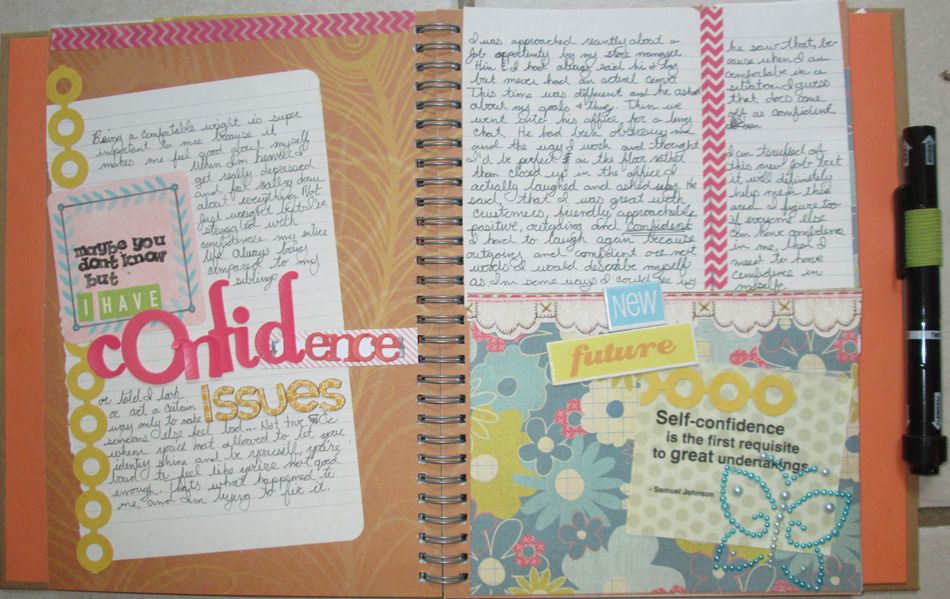 Being a comfortable weight is super
important to me because it
makes me feel good about myself
when I'm heavier I
get really depressed
and feel really down
about everything. Not
just weight but I've
struggled with
confidence my entire
life always being
compared to my
siblings
maybe you
dont know
but
I HAVE
cOnfidence
Issues
or told I look
or act a certain
way only to make
someone else feel too... Not true
when you're not allowed to let your
identity shine and be yourself, you're
bound to feel like you're not good
enough. That's what happened to
me, and I'm trying to fix it.
I was approached recently about a
job opportunity by my store manager.
Him & I had always said hi &
but never had an actual convo.
This time was different and he asked
about my goals & Then we
went into his office for a long
chat. He had been observing me
and the way I work and thought
I'd be perfect on the floor rather
than closed up in the office. I
actually laughed and asked why. He
said, that I was great with
customers, friendly, approachable
positive, outgoing and Confident
I had to laugh again because
outgoing and confident are not
words I would describe myself
as. In some ways I could see why
he saw that be-
cause when I am
comfortable in a
situation I guess
that does come
off as confident
I am terrified of
this new job but
it will definitely
help me in this
area. I figure too
if everyone else
can have confidence
in me, then I
need to have
confidence in
myself.
NEW
future
Self-confidence
is the first requisite
to great undertakings
- Samuel Johnson